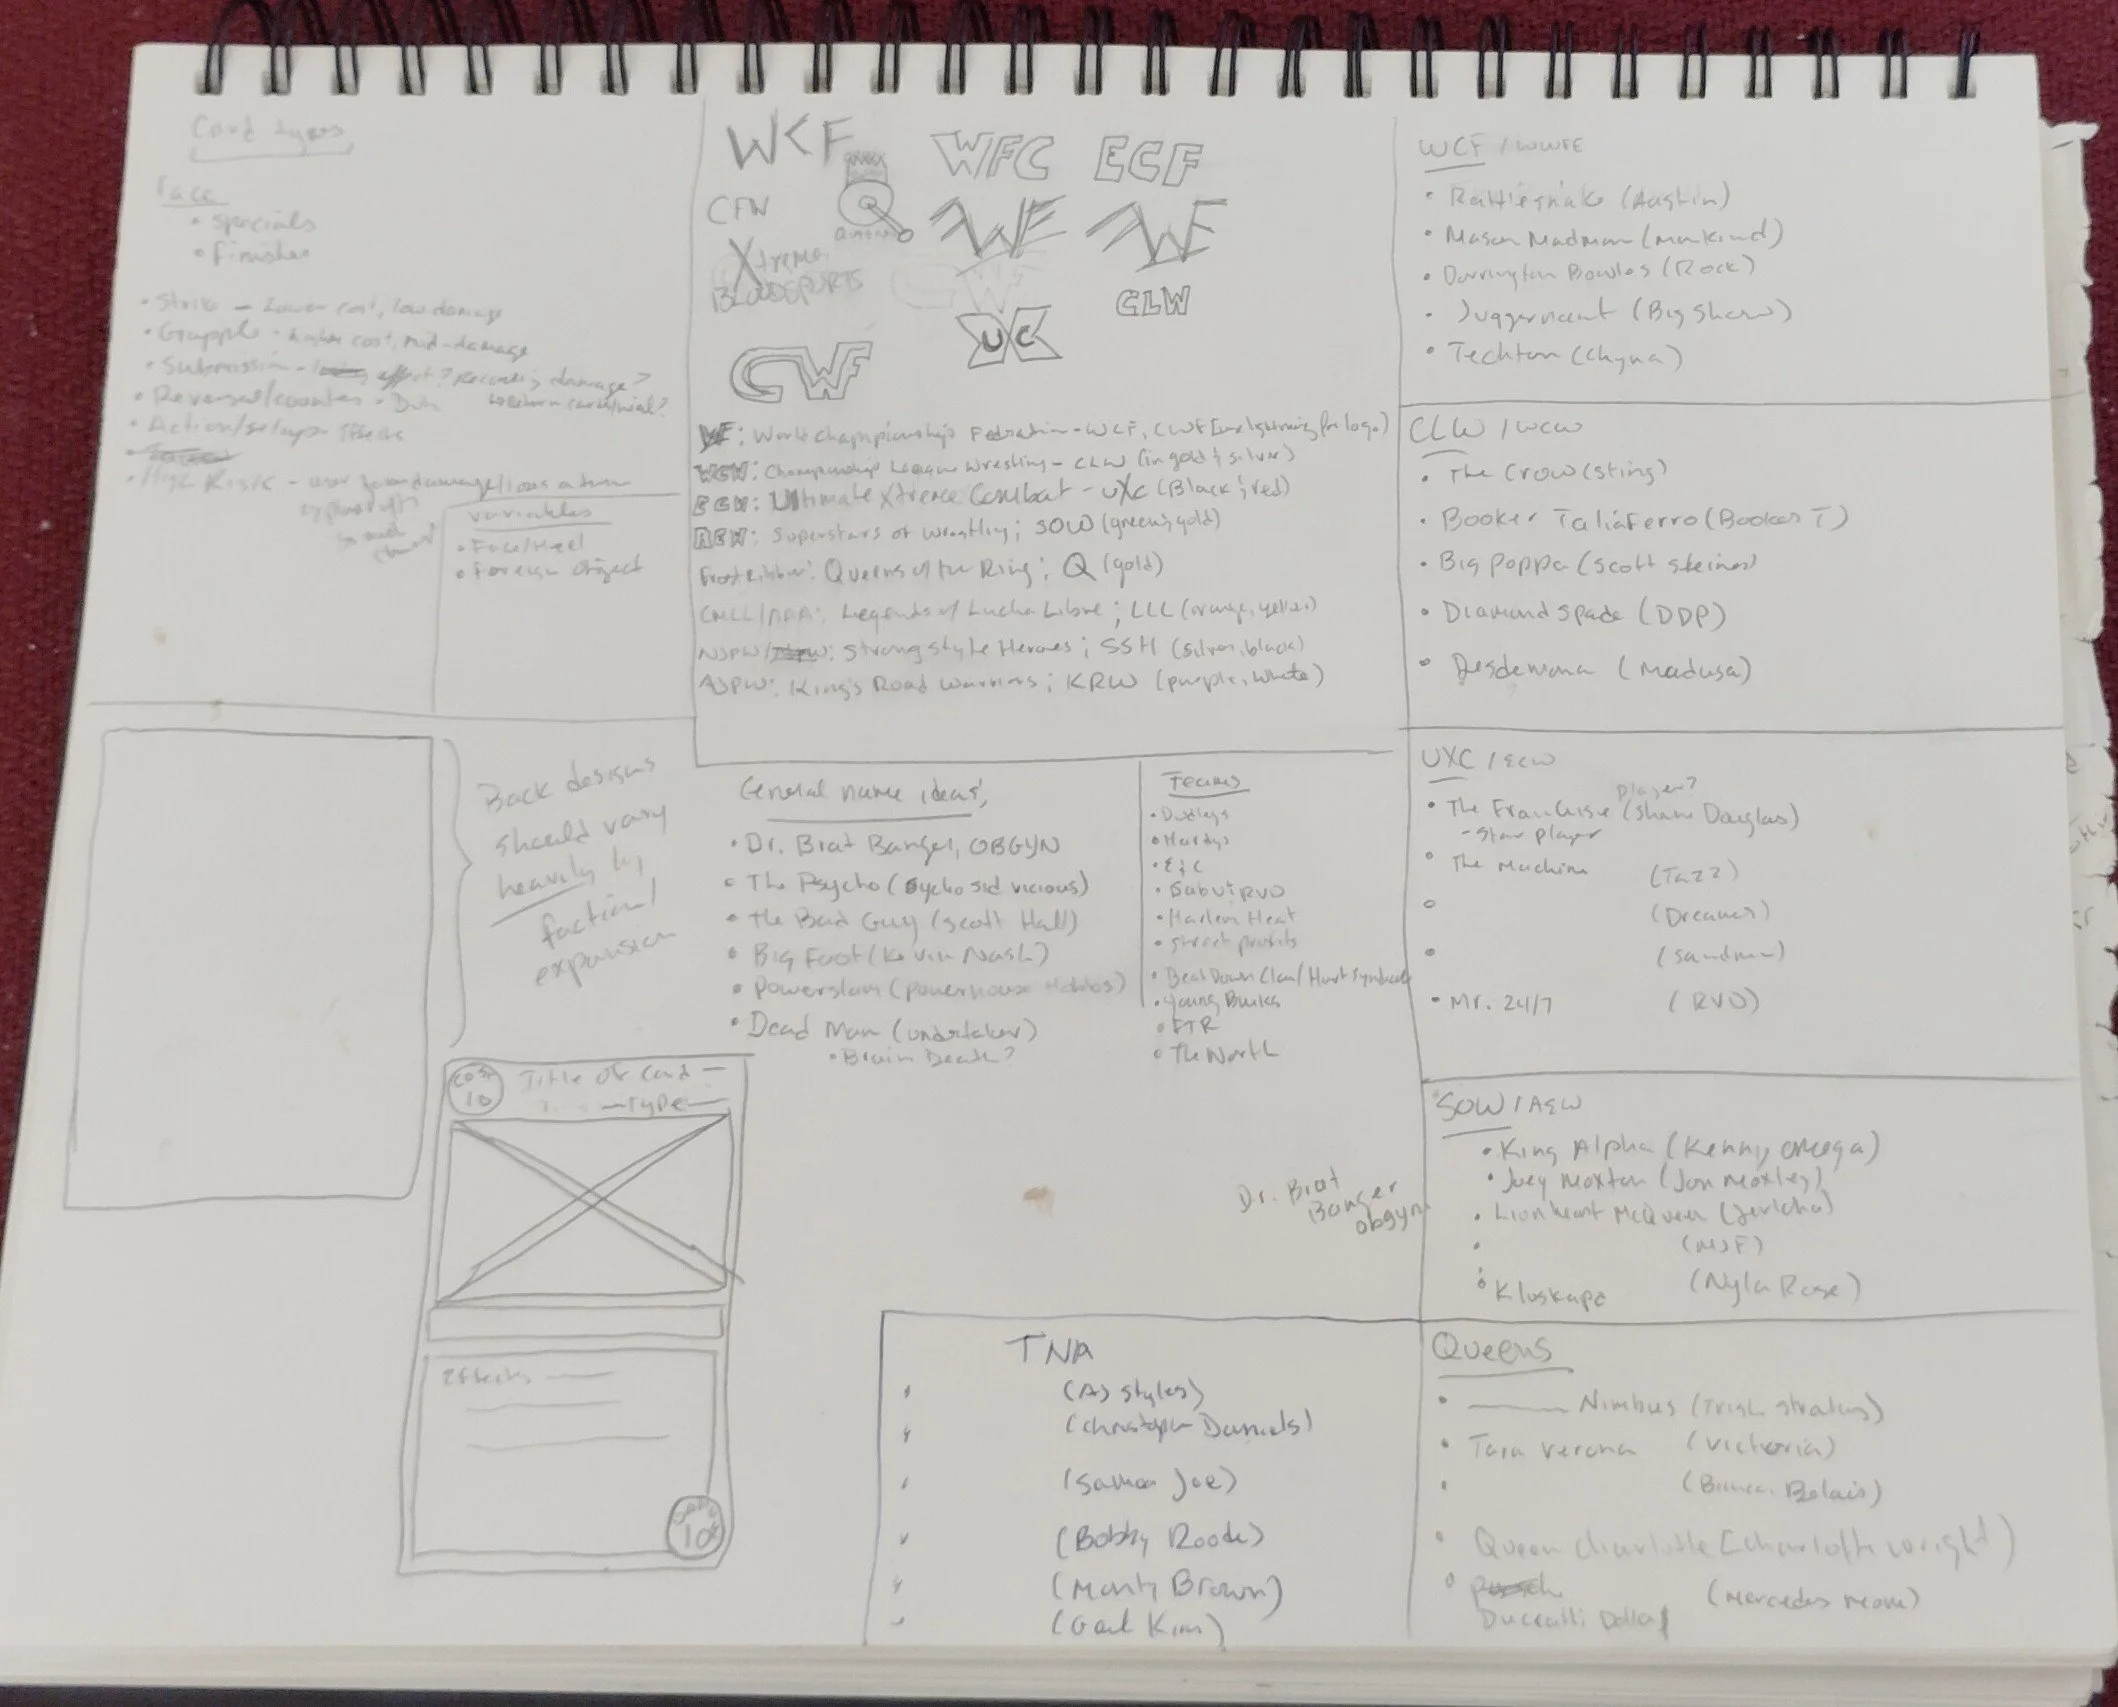 Card types
Face
• Specials
• Finisher
• Strike — Lower cost, low damage
• Grapple - higher cost, mid-damage
• Submission - effect? Recurring damage?
• Reversal/counter -
• Action/setup - Effects
• High Risk -
Variables
• Face/Heel
• Foreign object
Back designs
should vary
heavily by
faction/
expansion
Cost
10
Title of Card —
—Type—
Effects —
10
WCF
WFC
ECF
CFW
Xtreme
BLOODSPORTS
CLW
UXC
CWF
World Championship Federation - WCF, CWF
WCW: Championship League Wrestling - CLW (in gold & silver)
ECW: Ultimate Xtreme Combat - UXC (Black & red)
AEW: Superstars of Wrestling; SOW (green & gold)
Queens of the Ring; Q (gold)
CMLL/AAA: Legends of Lucha Libre; LLL (orange, yellow)
NJPW/ : Strong Style Heroes; SSH (silver, black)
AJPW: King's Road Warriors; KRW (purple, white)
General name ideas;
• Dr. Brat Banger, OBGYN
• The Psycho (Sycho Sid Vicious)
• The Bad Guy (Scott Hall)
• Big Foot (Kevin Nash)
• Powerslam (Powerhouse Hobbs)
• Dead Man (undertaker)
• Brain Death?
Teams
• Dudleys
• Hardys
• E&C
• Sabu & RVD
• Harlem Heat
• Street profits
• Beat Down Clan/Hurt Syndicate
• Young Bucks
• FTR
• The North
Dr. Brat
Banger
obgyn
TNA
(AJ Styles)
(Christopher Daniels)
(Samoa Joe)
(Bobby Roode)
(Monty Brown)
(Gail Kim)
WCF / WWFE
• Rattlesnake (Austin)
• Mason Madman (Mankind)
• Darrington Bowles (Rock)
• Juggernaut (Big Show)
• Techton (Chyna)
CLW / WCW
• The Crow (Sting)
• Booker Taliaferro (Booker T)
• Big Poppa (Scott Steiner)
• Diamond Spade (DDP)
• Desdemona (Madusa)
UXC / ECW
player?
• The Franchise (Shane Douglas)
- Star player
• The Machine (Tazz)
• (Dreamer)
• (Sandman)
• Mr. 24/7 (RVD)
SOW / AEW
• King Alpha (Kenny Omega)
• Joey Moxton (Jon Moxley)
• Lionheart McQueen (Jericho)
• (MJF)
• Kluskape (Nyla Rose)
Queens
• Nimbus (Trish Stratus)
• Tara Verona (Victoria)
• (Bianca Belair)
• Queen Charlotte [Charlotte Wright)
• (Mercedes Mone)